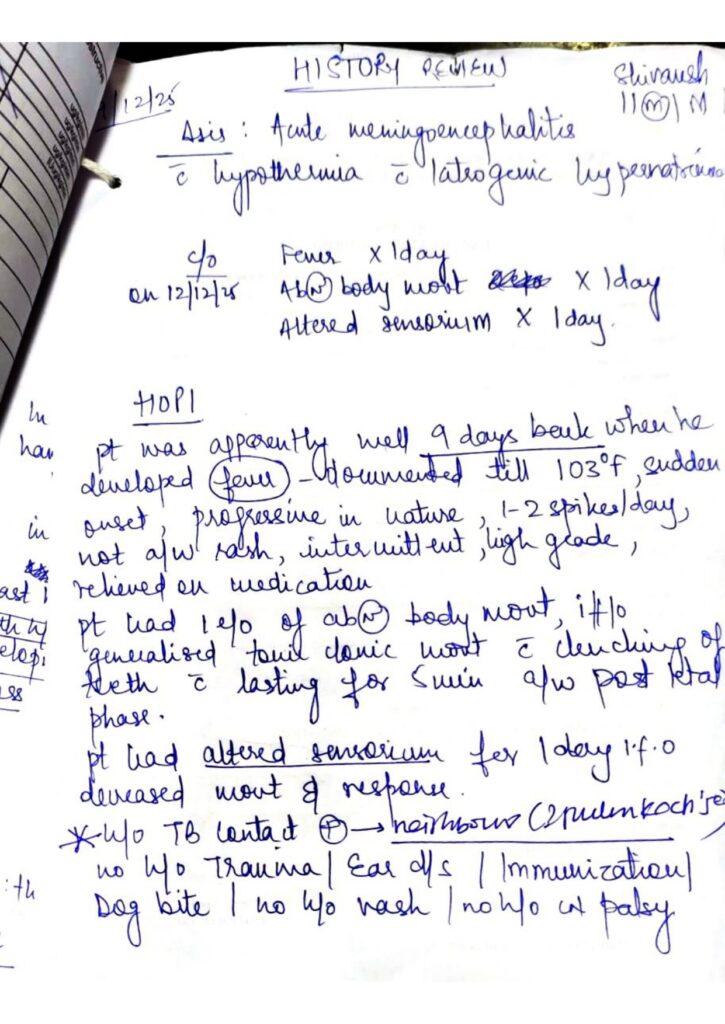 HISTORY REVIEW
/12/25
Shivansh
11 (m) | M
Asis : Acute meningoencephalitis
c̄ hypothermia c̄ Iatrogenic hypernatremia
c/o Fever x 1 day
on 12/12/25 Ab(N) body movt x 1 day
Altered sensorium x 1 day.
HOPI
pt was apparently well 9 days back when he
developed fever - documented till 103°f, sudden
onset, progressive in nature, 1-2 spikes/day,
not a/w rash, intermittent, high grade,
relieved on medication
pt had 1 e/o of ab(N) body movt, i f/o
generalised tonic clonic movt c̄ clenching of
teeth c̄ lasting for 5 min a/w post ictal
phase.
pt had altered sensorium for 1 day i.f.o
decreased movt & response.
* h/o TB contact ⊕ → neighbour (2 pulm koch's)
no h/o Trauma | Ear d/s | Immunization |
Dog bite | no h/o rash | no h/o CN palsy